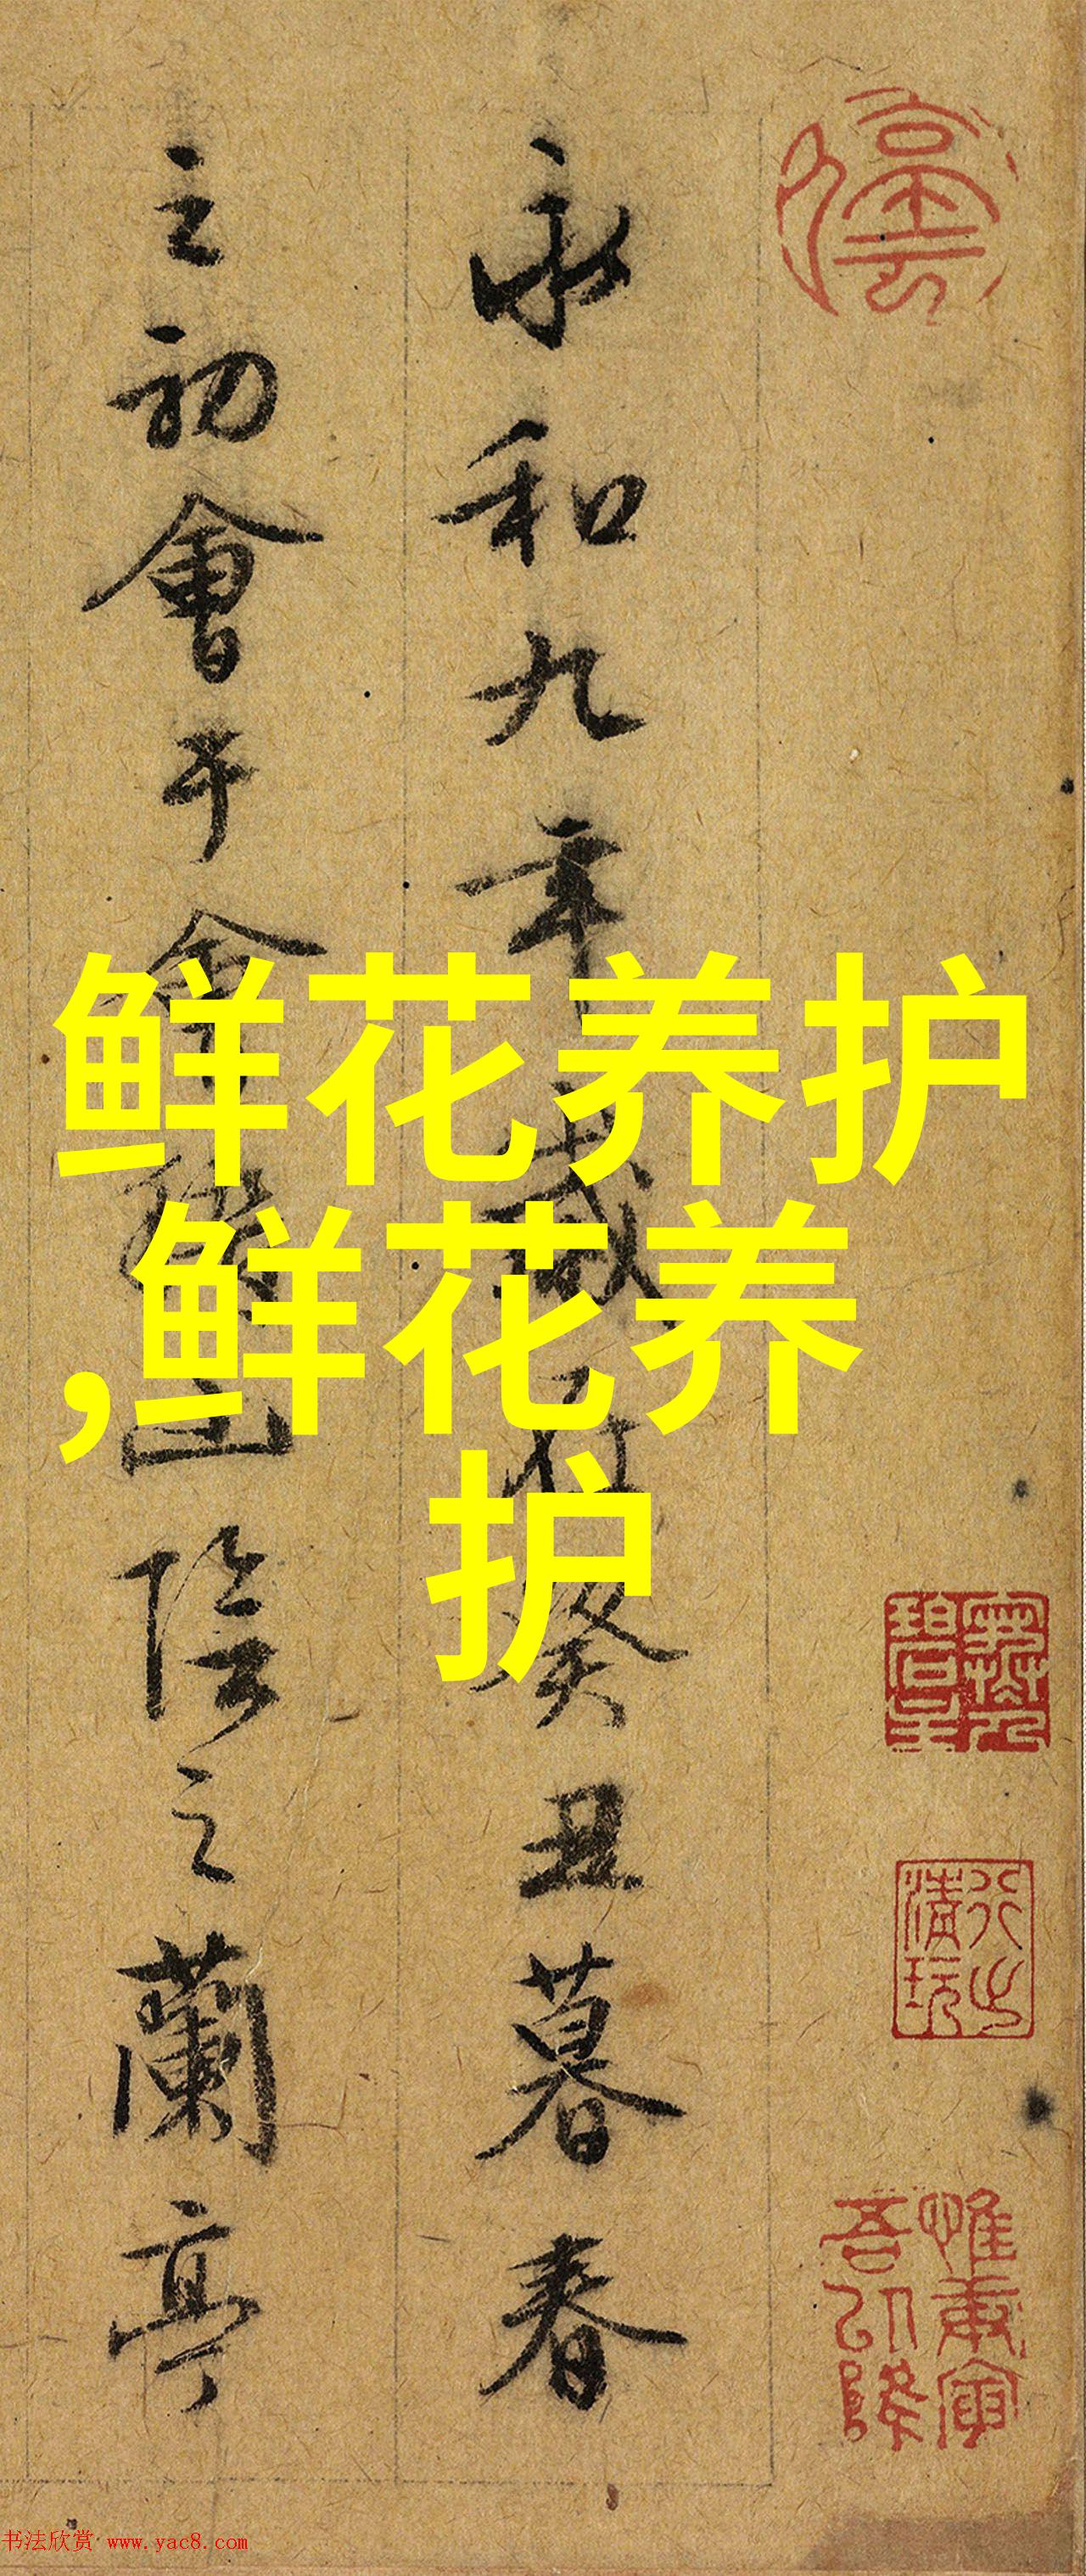 永和九年歲在癸丑暮春
之初會于會稽山陰之蘭亭
鲜花养护
,鲜花养
护
书法欣赏 www.yac8.com